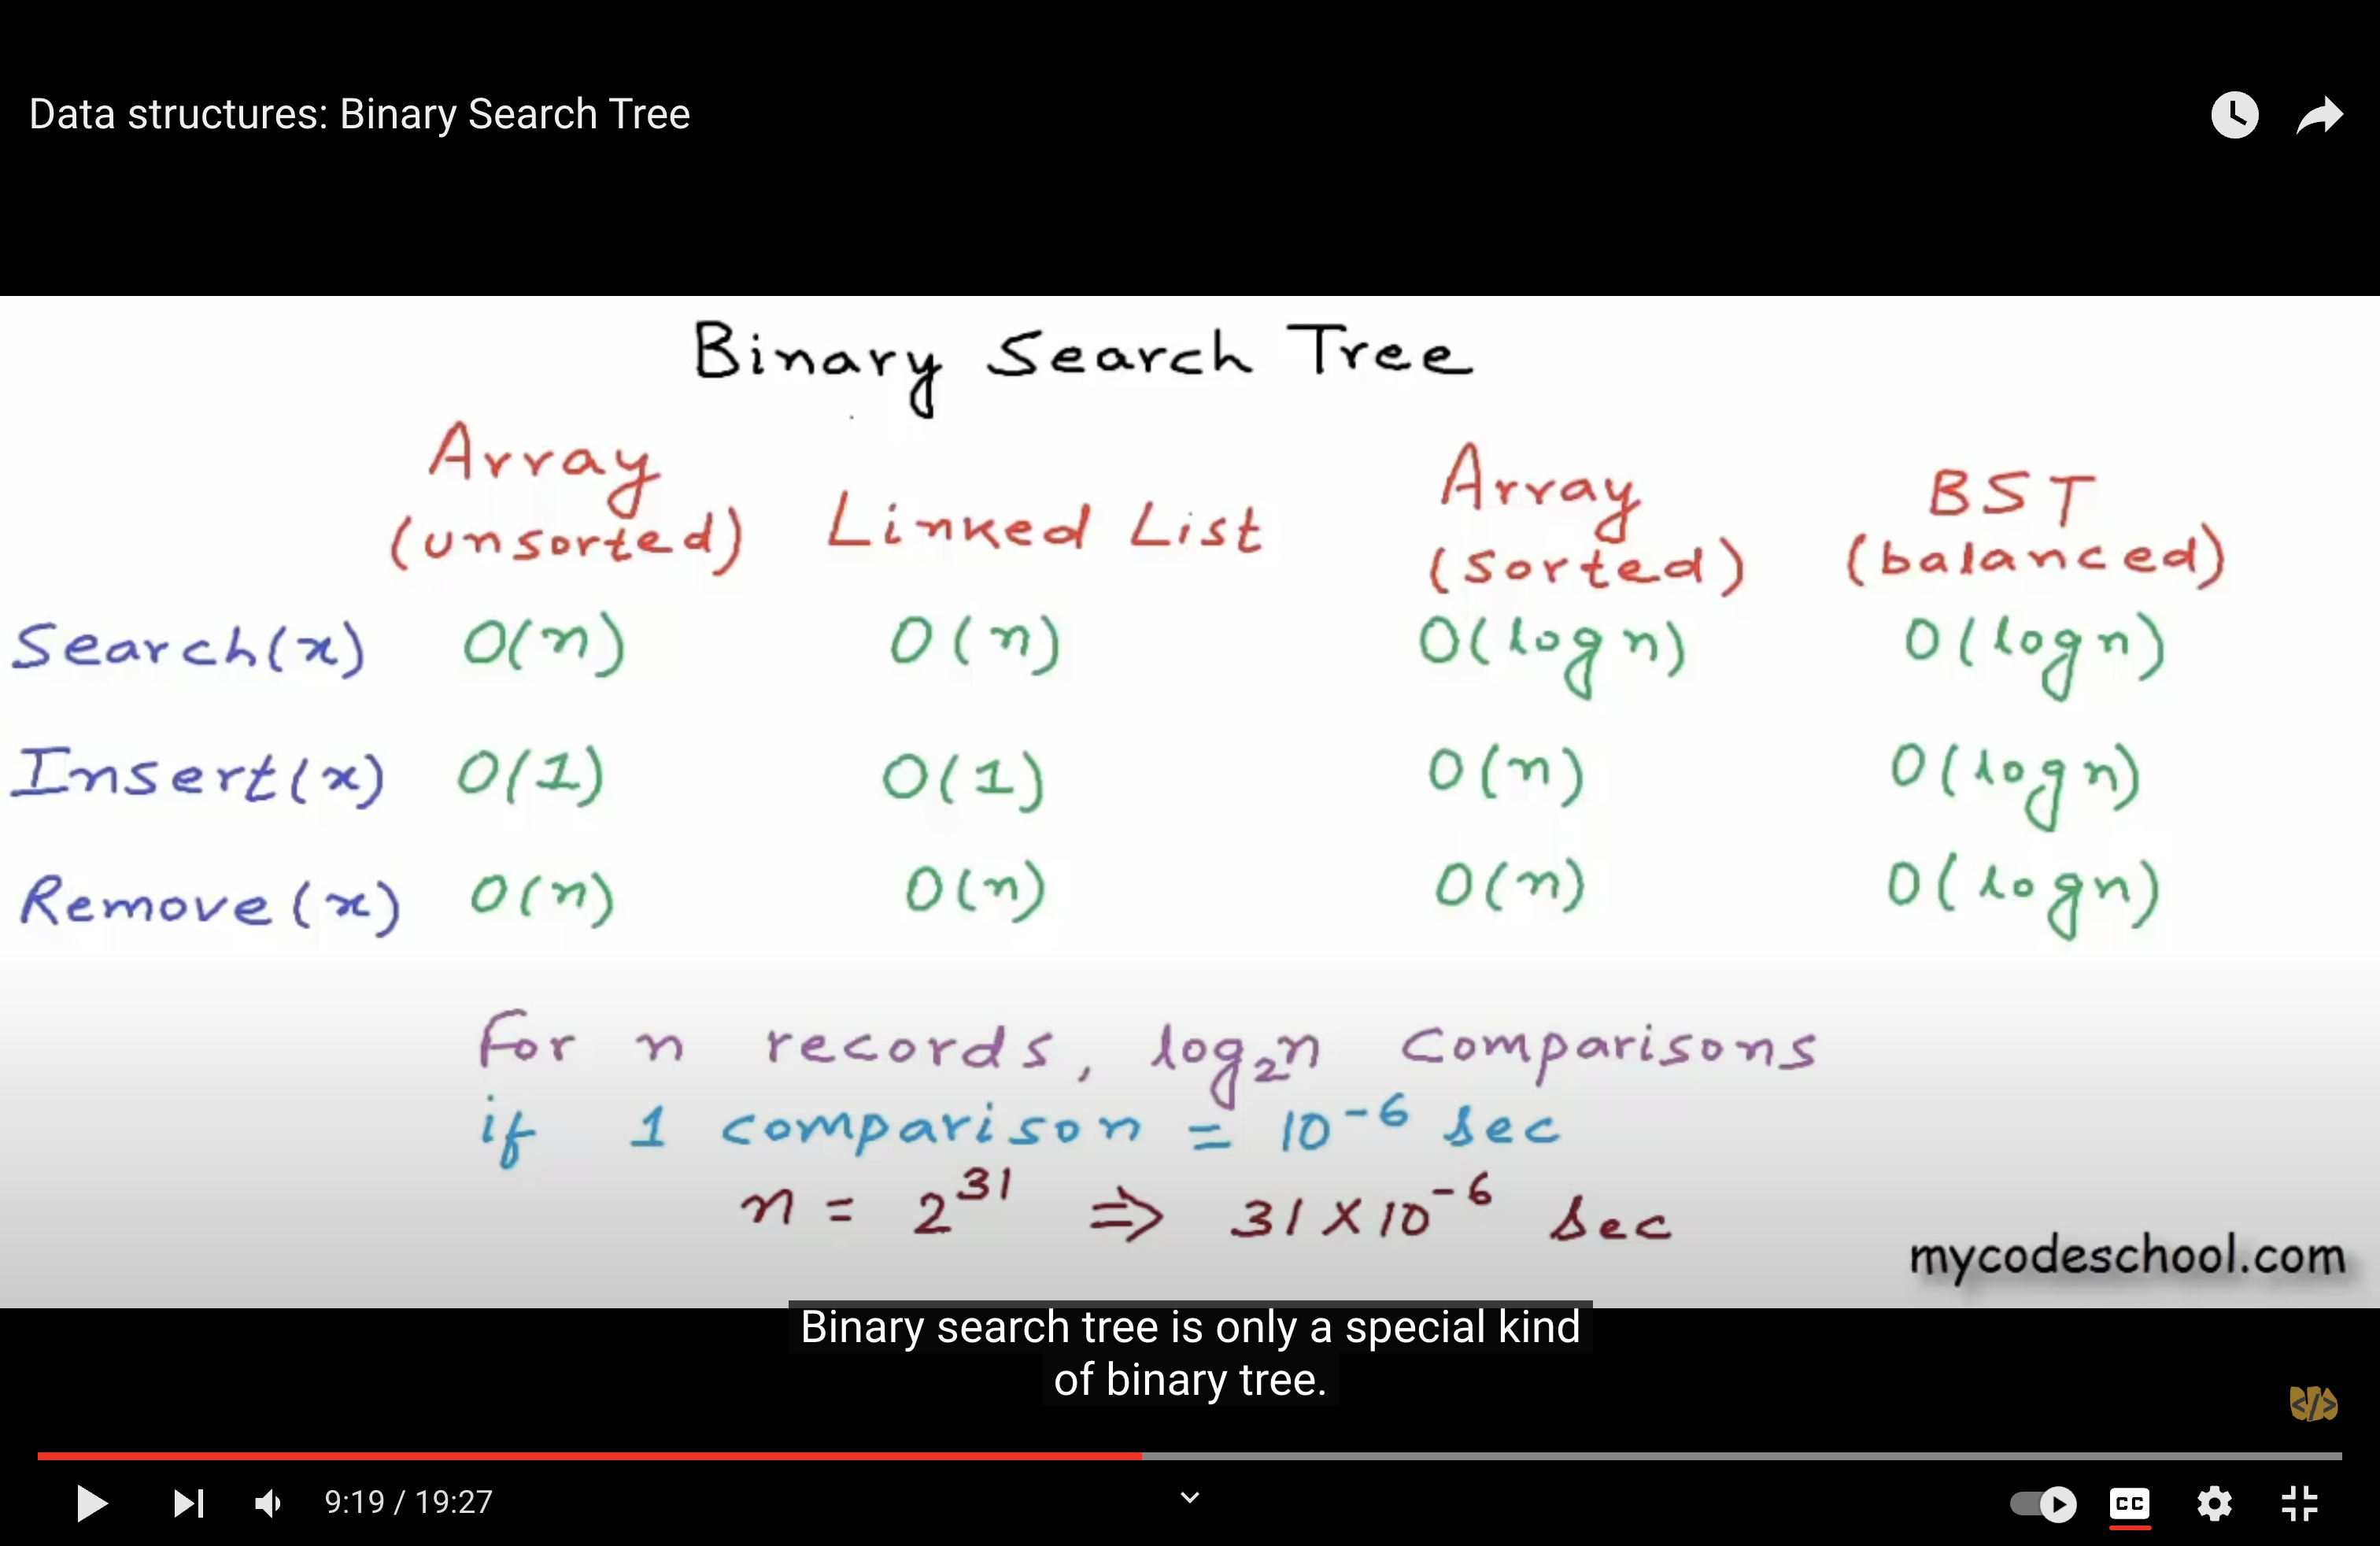 Data structures: Binary Search Tree
Binary Search Tree
Array (unsorted) Linked List Array (sorted) BST (balanced)
Search(x) O(n) O(n) O(log n) O(log n)
Insert(x) O(1) O(1) O(n) O(log n)
Remove(x) O(n) O(n) O(n) O(log n)
For n records, log₂n comparisons
if 1 comparison = 10⁻⁶ sec
n = 2³¹ ⇒ 31 × 10⁻⁶ sec
mycodeschool.com
Binary search tree is only a special kind
of binary tree.
</>
9:19 / 19:27 CC